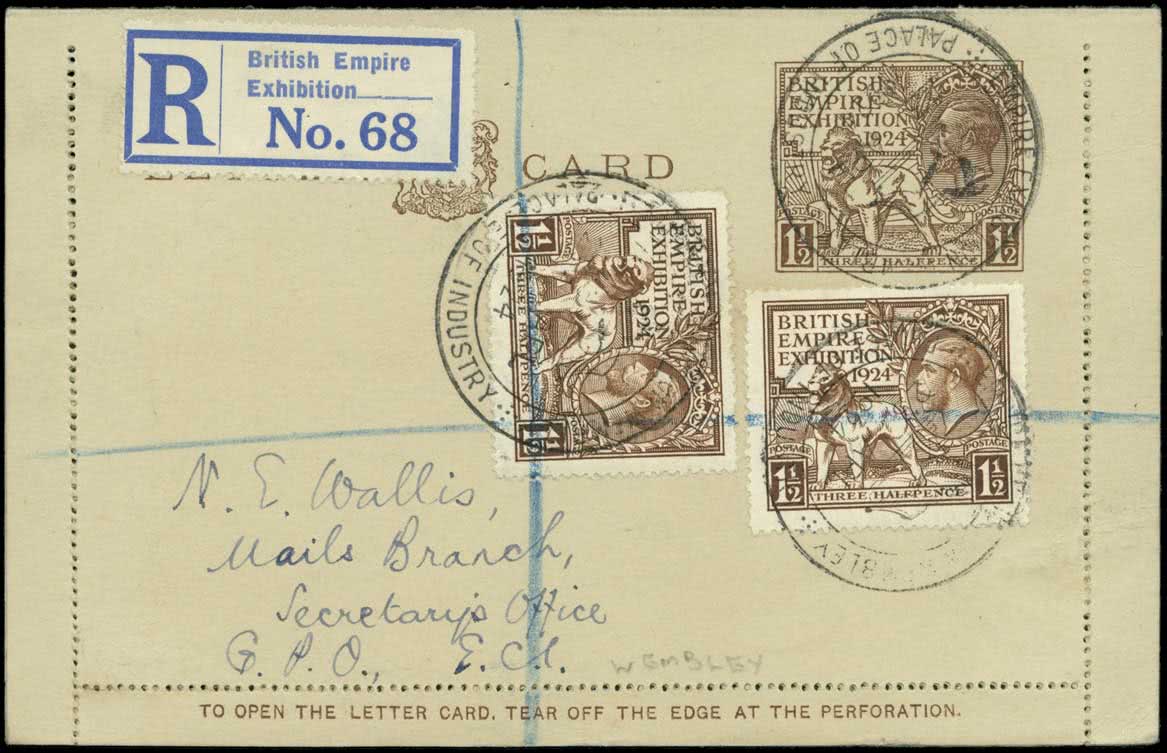 R
British Empire
Exhibition
No. 68
CARD
BRITISH
EMPIRE
EXHIBITION
1924
POSTAGE POSTAGE
1½ THREE HALFPENCE 1½
PALACE OF
PALACE OF INDUSTRY
BRITISH
EMPIRE
EXHIBITION
1924
POSTAGE
1½ THREE HALFPENCE 1½
BRITISH
EMPIRE
EXHIBITION
1924
POSTAGE POSTAGE
1½ THREE HALFPENCE 1½
WEMBLEY
N. E. Wallis,
Mails Branch,
Secretary's Office
G. P. O., E.C.1.
WEMBLEY
TO OPEN THE LETTER CARD, TEAR OFF THE EDGE AT THE PERFORATION.